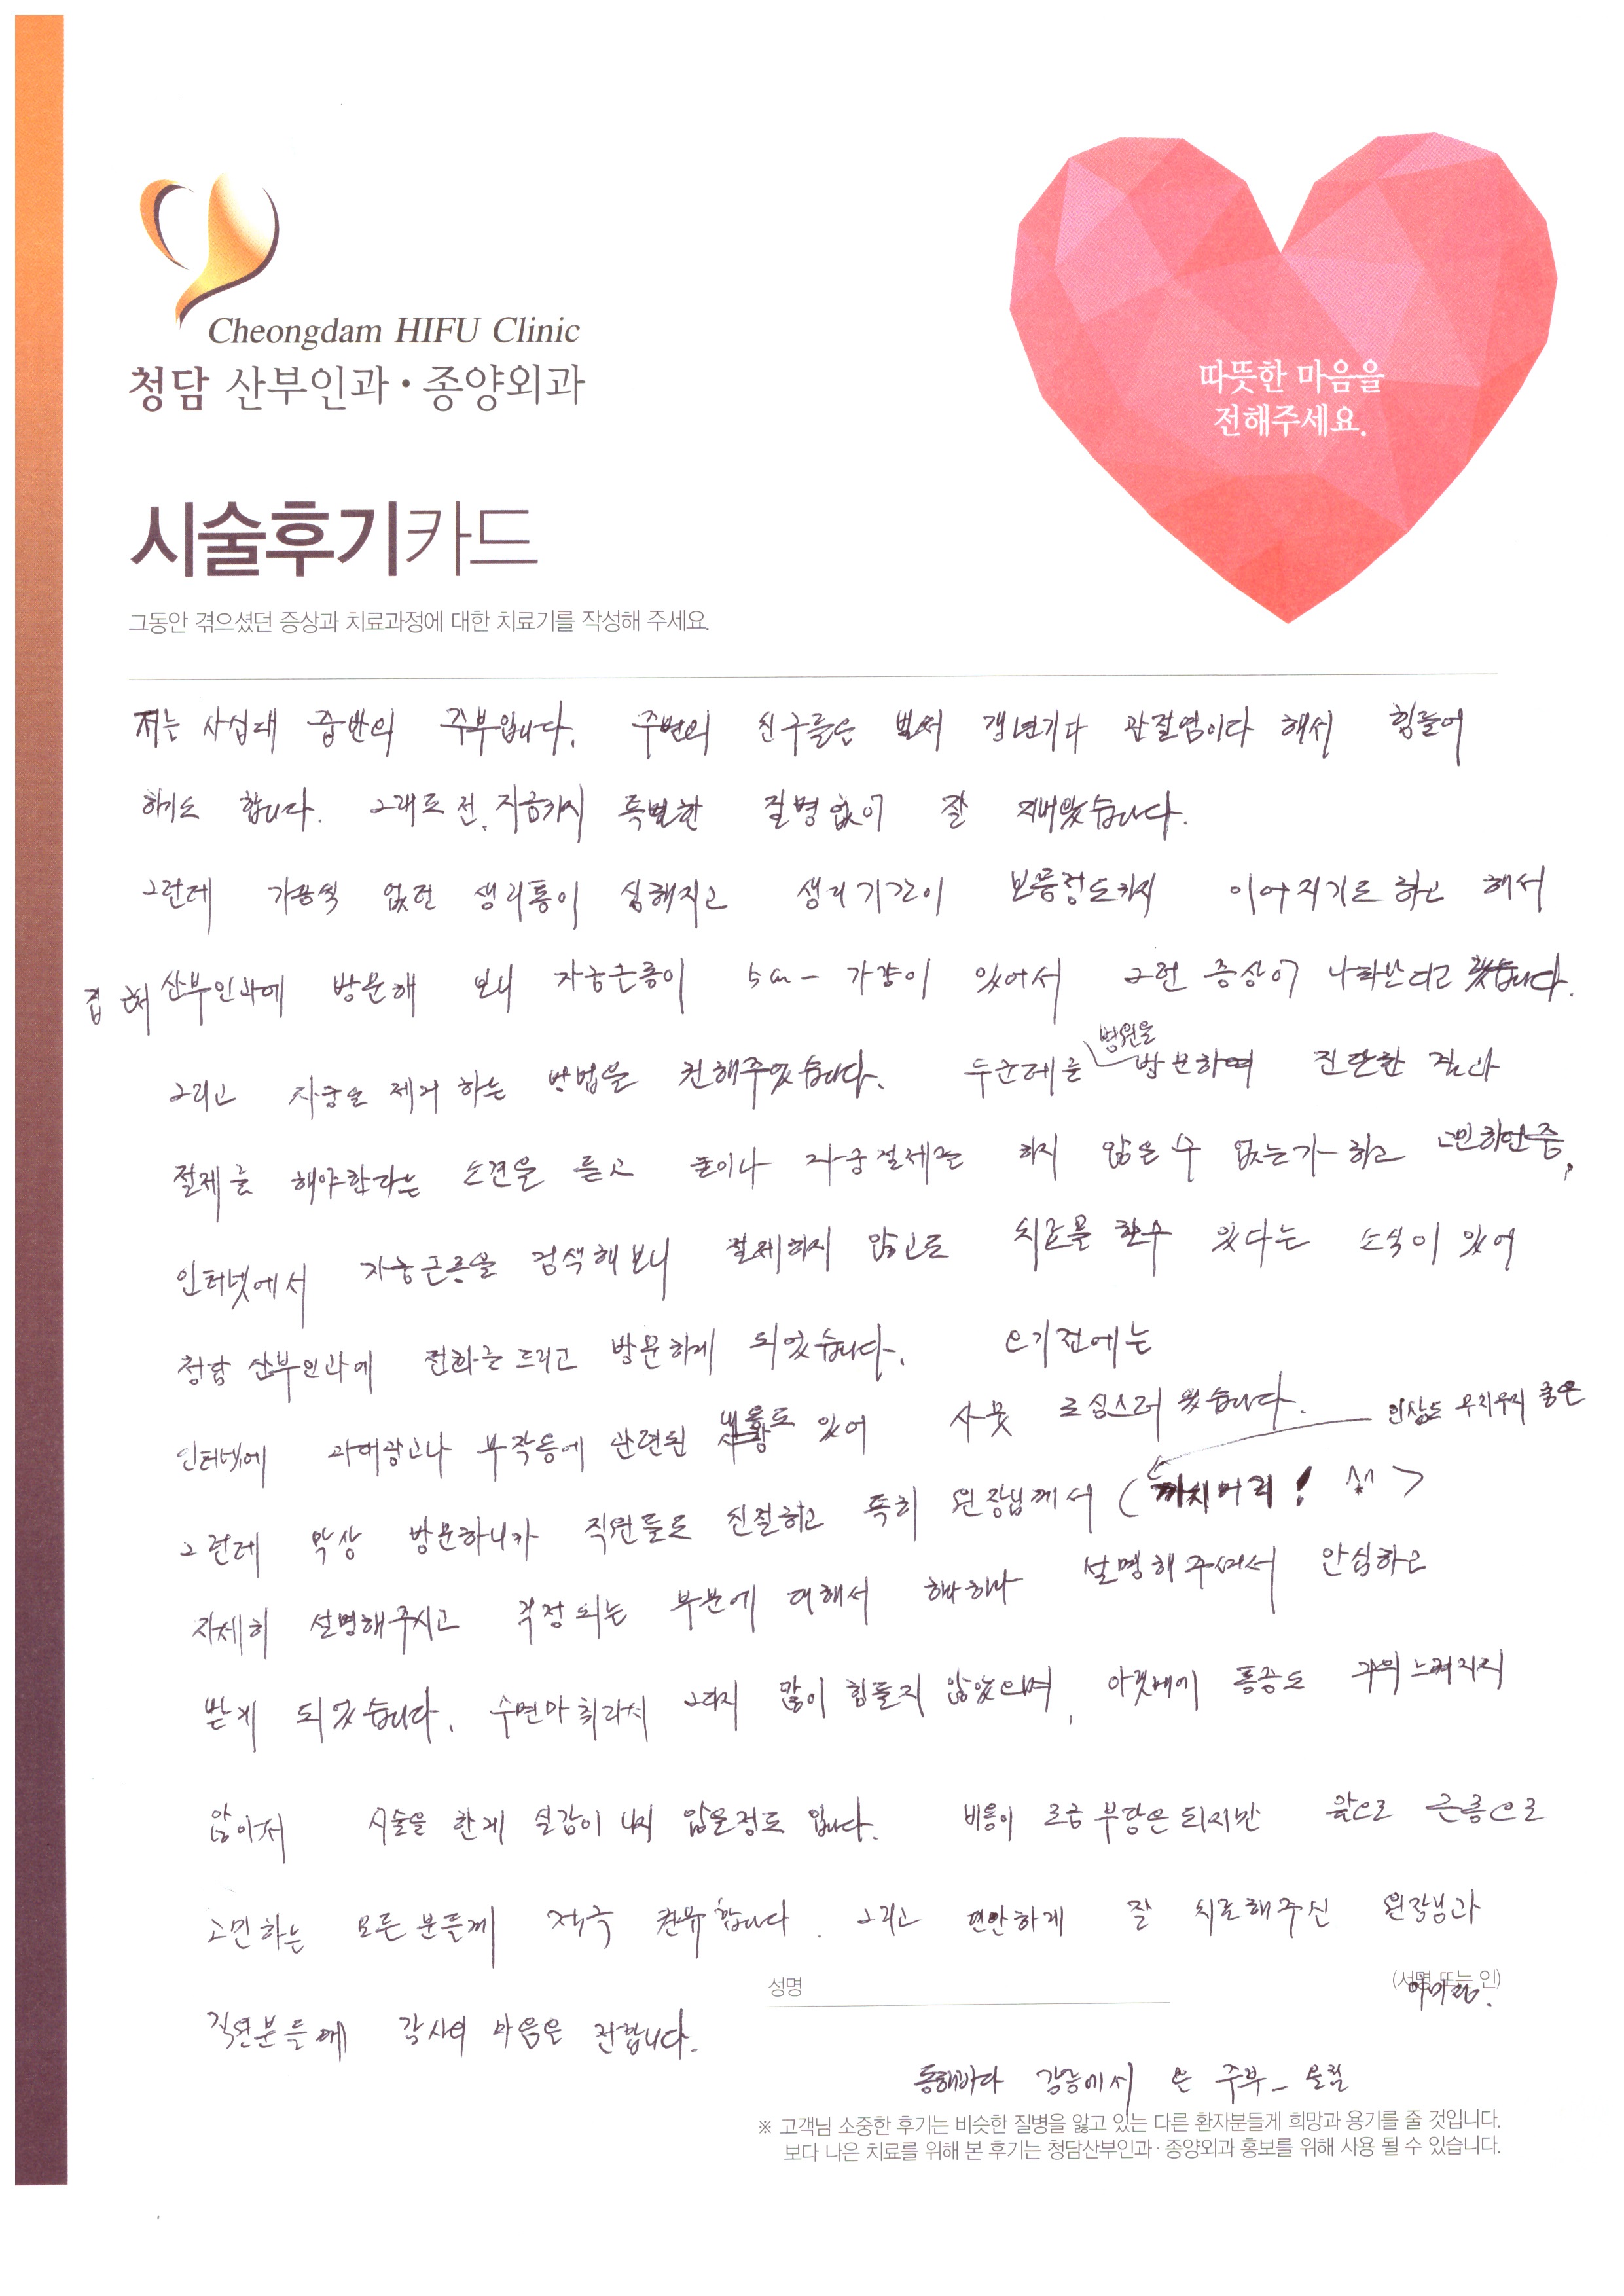 Cheongdam HIFU Clinic
청담 산부인과·종양외과
따뜻한 마음을
전해주세요.
시술후기카드
그동안 겪으셨던 증상과 치료과정에 대한 치료기를 작성해 주세요.
저는 사십대 중반의 주부입니다. 주변의 친구들은 벌써 갱년기다 관절염이다 해서 힘들어
하기도 합니다. 그래도 전, 지금까지 특별한 질병없이 잘 지내왔습니다.
그런데 가끔씩 없던 생리통이 심해지고 생리기간이 보름정도까지 이어지기도 하고 해서
집 근처 산부인과에 방문해 보니 자궁근종이 5cm- 가량이 있어서 그런 증상이 나타난다고 했습니다.
그리고 자궁을 제거 하는 방법을 권해주었습니다. 두군데를 병원을 방문하며 진단한 결과
절제를 해야한다는 소견을 듣고 자궁절제를 하지 않을 수 없는가 하고 고민하던중,
인터넷에서 자궁근종을 검색해보니 절제하지 않고도 치료를 할수 있다는 소식이 있어
청담 산부인과에 전화를 드리고 방문하게 되었습니다. 오기전에는
인터넷에 과대광고나 부작용에 관련된 내용도 있어 사뭇 조심스러웠습니다. 인상도 무지무지 좋은
그런데 막상 방문하니까 직원들도 친절하고 특히 원장님께서 (까치머리! ^^)
자세히 설명해주시고 걱정되는 부분에 대해서 하나하나 설명해주셔서 안심하고
받게 되었습니다. 수면마취라서 그다지 많이 힘들지 않았으며, 아랫배에 통증도 거의 느껴지지
않아서 시술을 한게 실감이 나지 않을정도 입니다. 비용이 조금 부담은 되지만 앞으로 근종으로
고민하는 모든분들께 적극 권유합니다. 그리고 편안하게 잘 치료해주신 원장님과
성명 (서명 또는 인)
직원분들께 감사의 마음을 전합니다.
동해바다 강릉에서 온 주부_ 올림
※ 고객님 소중한 후기는 비슷한 질병을 앓고 있는 다른 환자분들게 희망과 용기를 줄 것입니다.
보다 나은 치료를 위해 본 후기는 청담산부인과·종양외과 홍보를 위해 사용 될 수 있습니다.